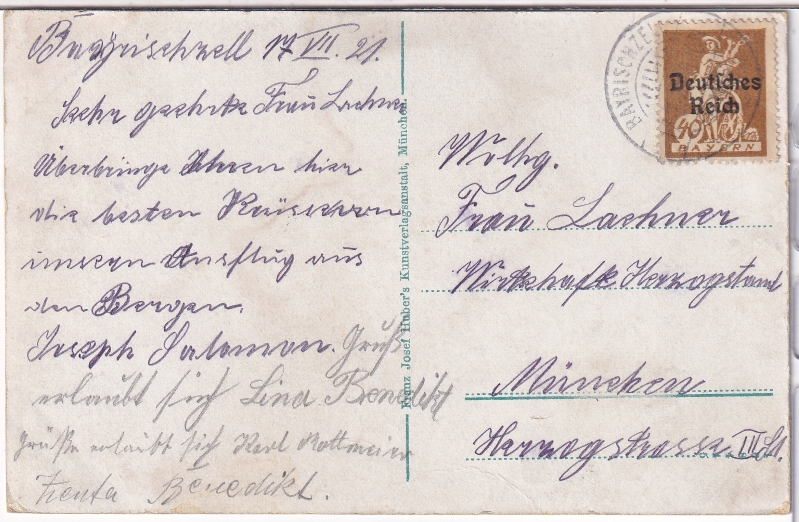 Bayrischzell 17 VII. 21.
Sehr geehrte Frau Lachner
Überbringe Ihnen hier
die besten
unsern Ausflug aus
den Bergen.
Joseph Salomon. Gruß
erlaubt sich Lina Benedikt
Grüße erlaubt sich Karl Rottmeier
Zenta Benedikt.
Franz Josef Huber's Kunstverlagsanstalt, München.
BAYRISCHZE
Deutsches
Reich
40
BAYERN
Wohlg.
Frau Lachner
Wirtschaft Herzogstand
München
Herzogstrasse III St.